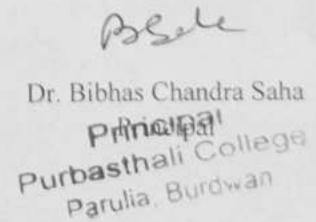 Dr. Bibhas Chandra Saha
Principal
Principal
Purbasthali College
Parulia, Burdwan